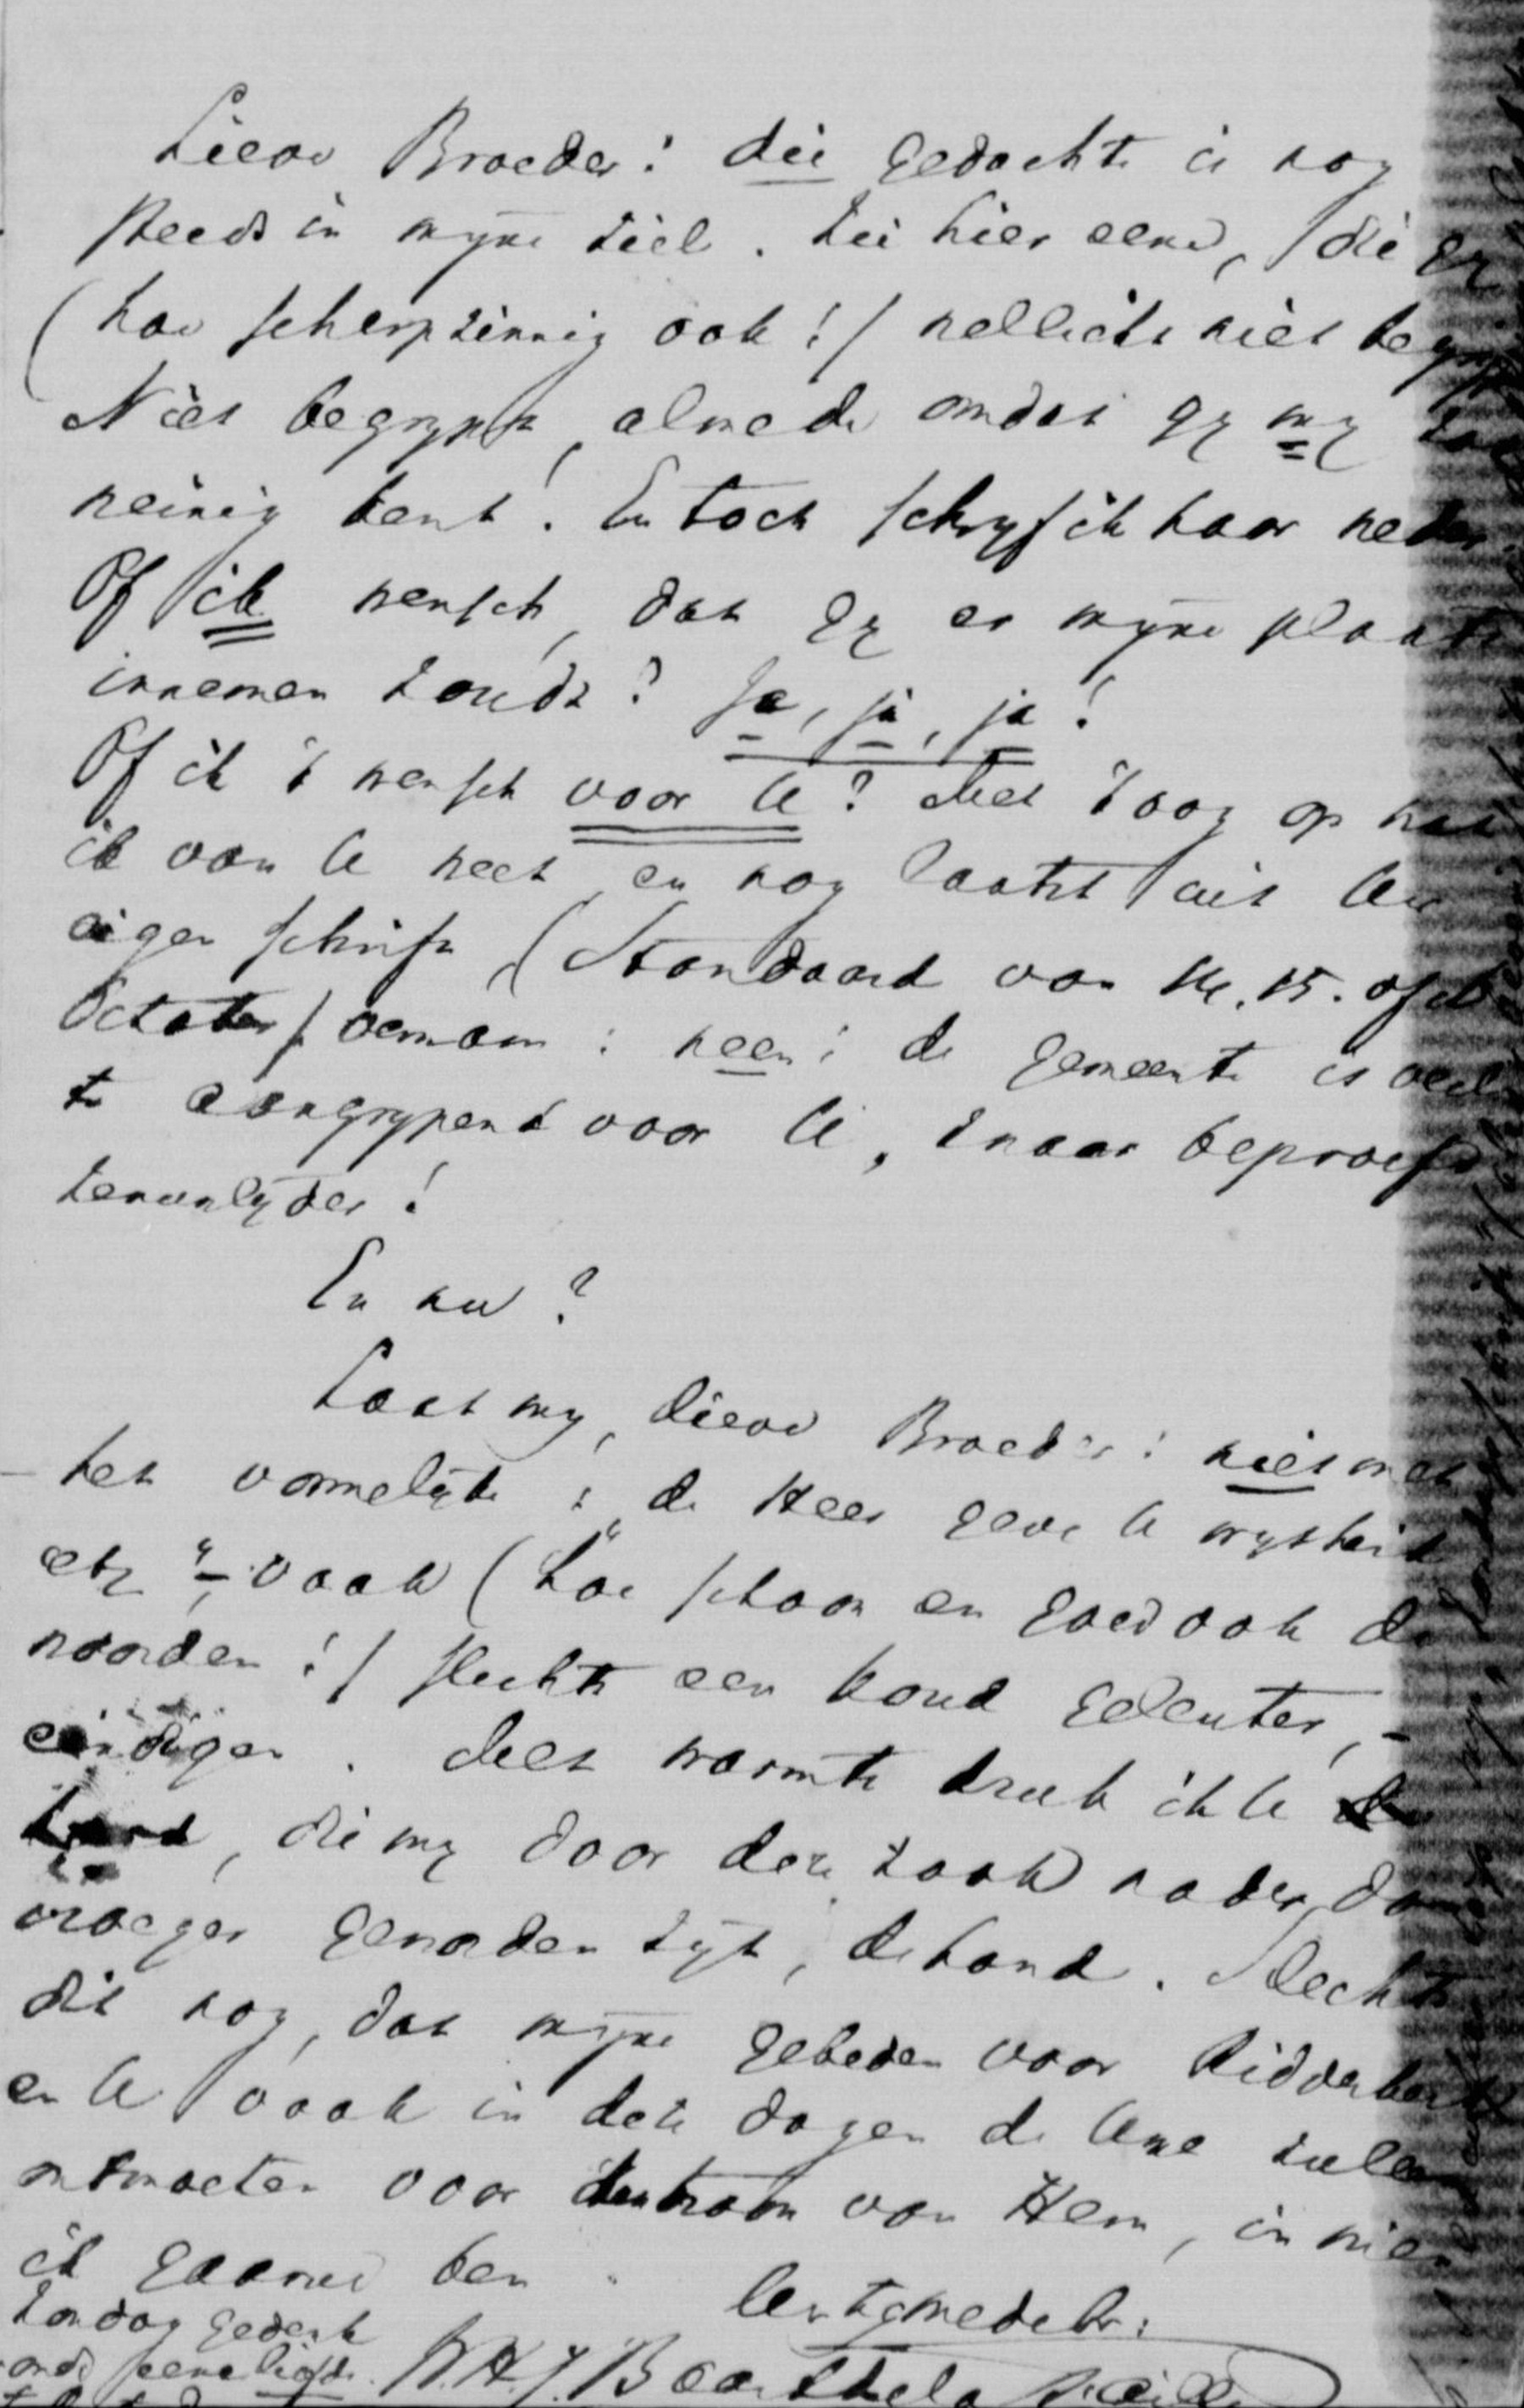 Lieve Broeder! die gedachte is nog
steeds in myne ziel. Zie hier eene, die gy
(hoe scherpzinnig ook!) wellicht niet begrypt
Niet begrypt, almede omdat gy my
weinig kent! En toch schryf ik haar neder.
Of ik wensch, dat gy er myne plaats
innemen zoudt? Ja, ja, ja!
Of ik 't wensch voor U? Met 't oog op wat
ik van U weet, en nog laatst uit Uw
eigen schrift (Standaard van 14. 15. of
October) vernam: neen! de gemeente is veel
te aangrypend voor U, zwaar beproefd
zenuwlyder!
En nu?
Laat my, lieve Broeder! niet met
het vormelyke: „de Heer geve U wysheid
etz" – vaak (hoe schoon en goed ook de
woorden!) slechts een koud geleuter, –
eindigen. Met warmte druk ik U
hand, die my door deze zaak nader dan
vroeger geworden zyt, de hand. Slechts
dit nog, dat myne gebeden voor Ridderkerk
en U vaak in deze dagen de Uwe zullen
ontmoeten voor den troon van Hem, in wien
ik gaarne ben
Uw tgmedebr:
Zondag gedenk
W.H.J. Baart